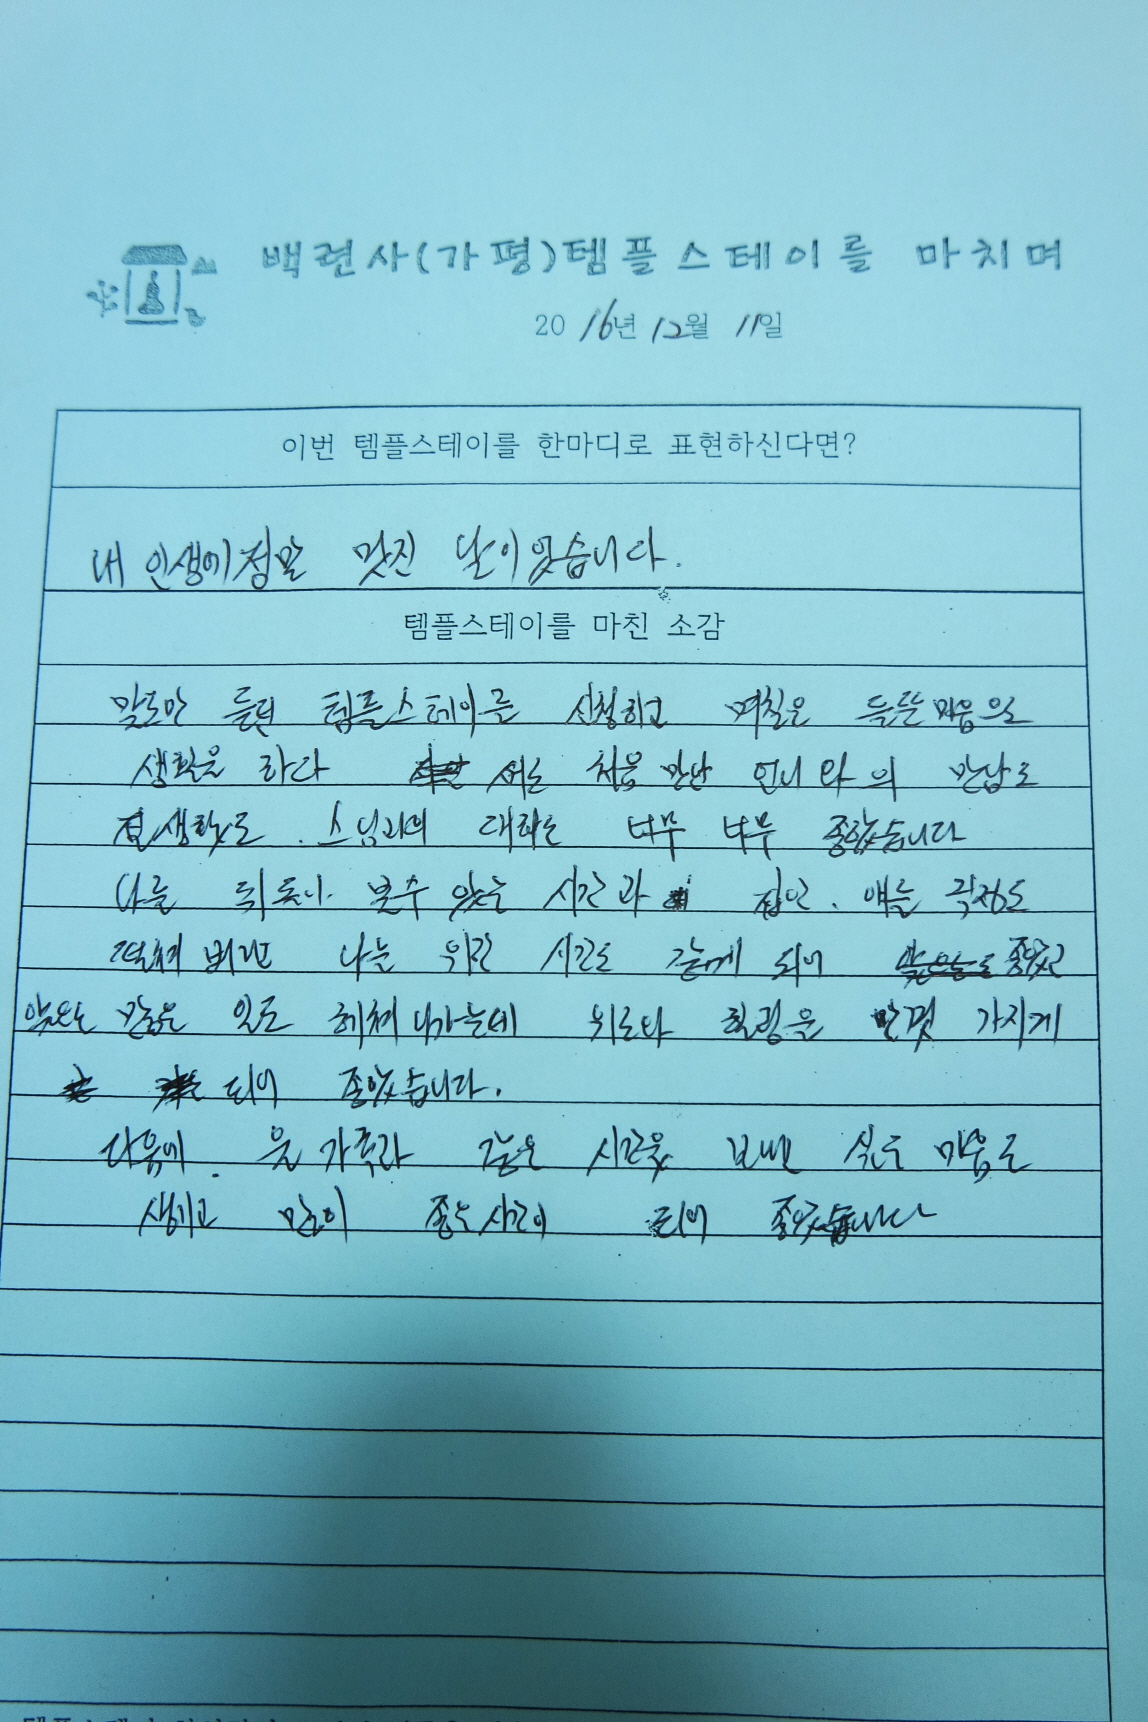 백련사(가평)템플스테이를 마치며
2016년 12월 11일
이번 템플스테이를 한마디로 표현하신다면?
내 인생에 정말 멋진 날이었습니다.
템플스테이를 마친 소감
말로만 듣던 템플스테이를 신청하고 며칠은 들뜬 마음으로
생활을 하다 서로 처음 만난 언니와의 만남도
스님과의 대화도 너무 너무 좋았습니다
나를 뒤돌아 볼수 있는 시간과 집안, 애들 걱정도
떨쳐버리고 나를 위한 시간도 갖게 되어 좋았고
앞으로 많은 일도 헤쳐나가는데 위로와 희망을 맘껏 가지게
되어 좋았습니다.
다음에 온 가족과 같은 시간을 보내고 싶은 마음도
생기고 많이 좋은 시간이 되어 좋았습니다